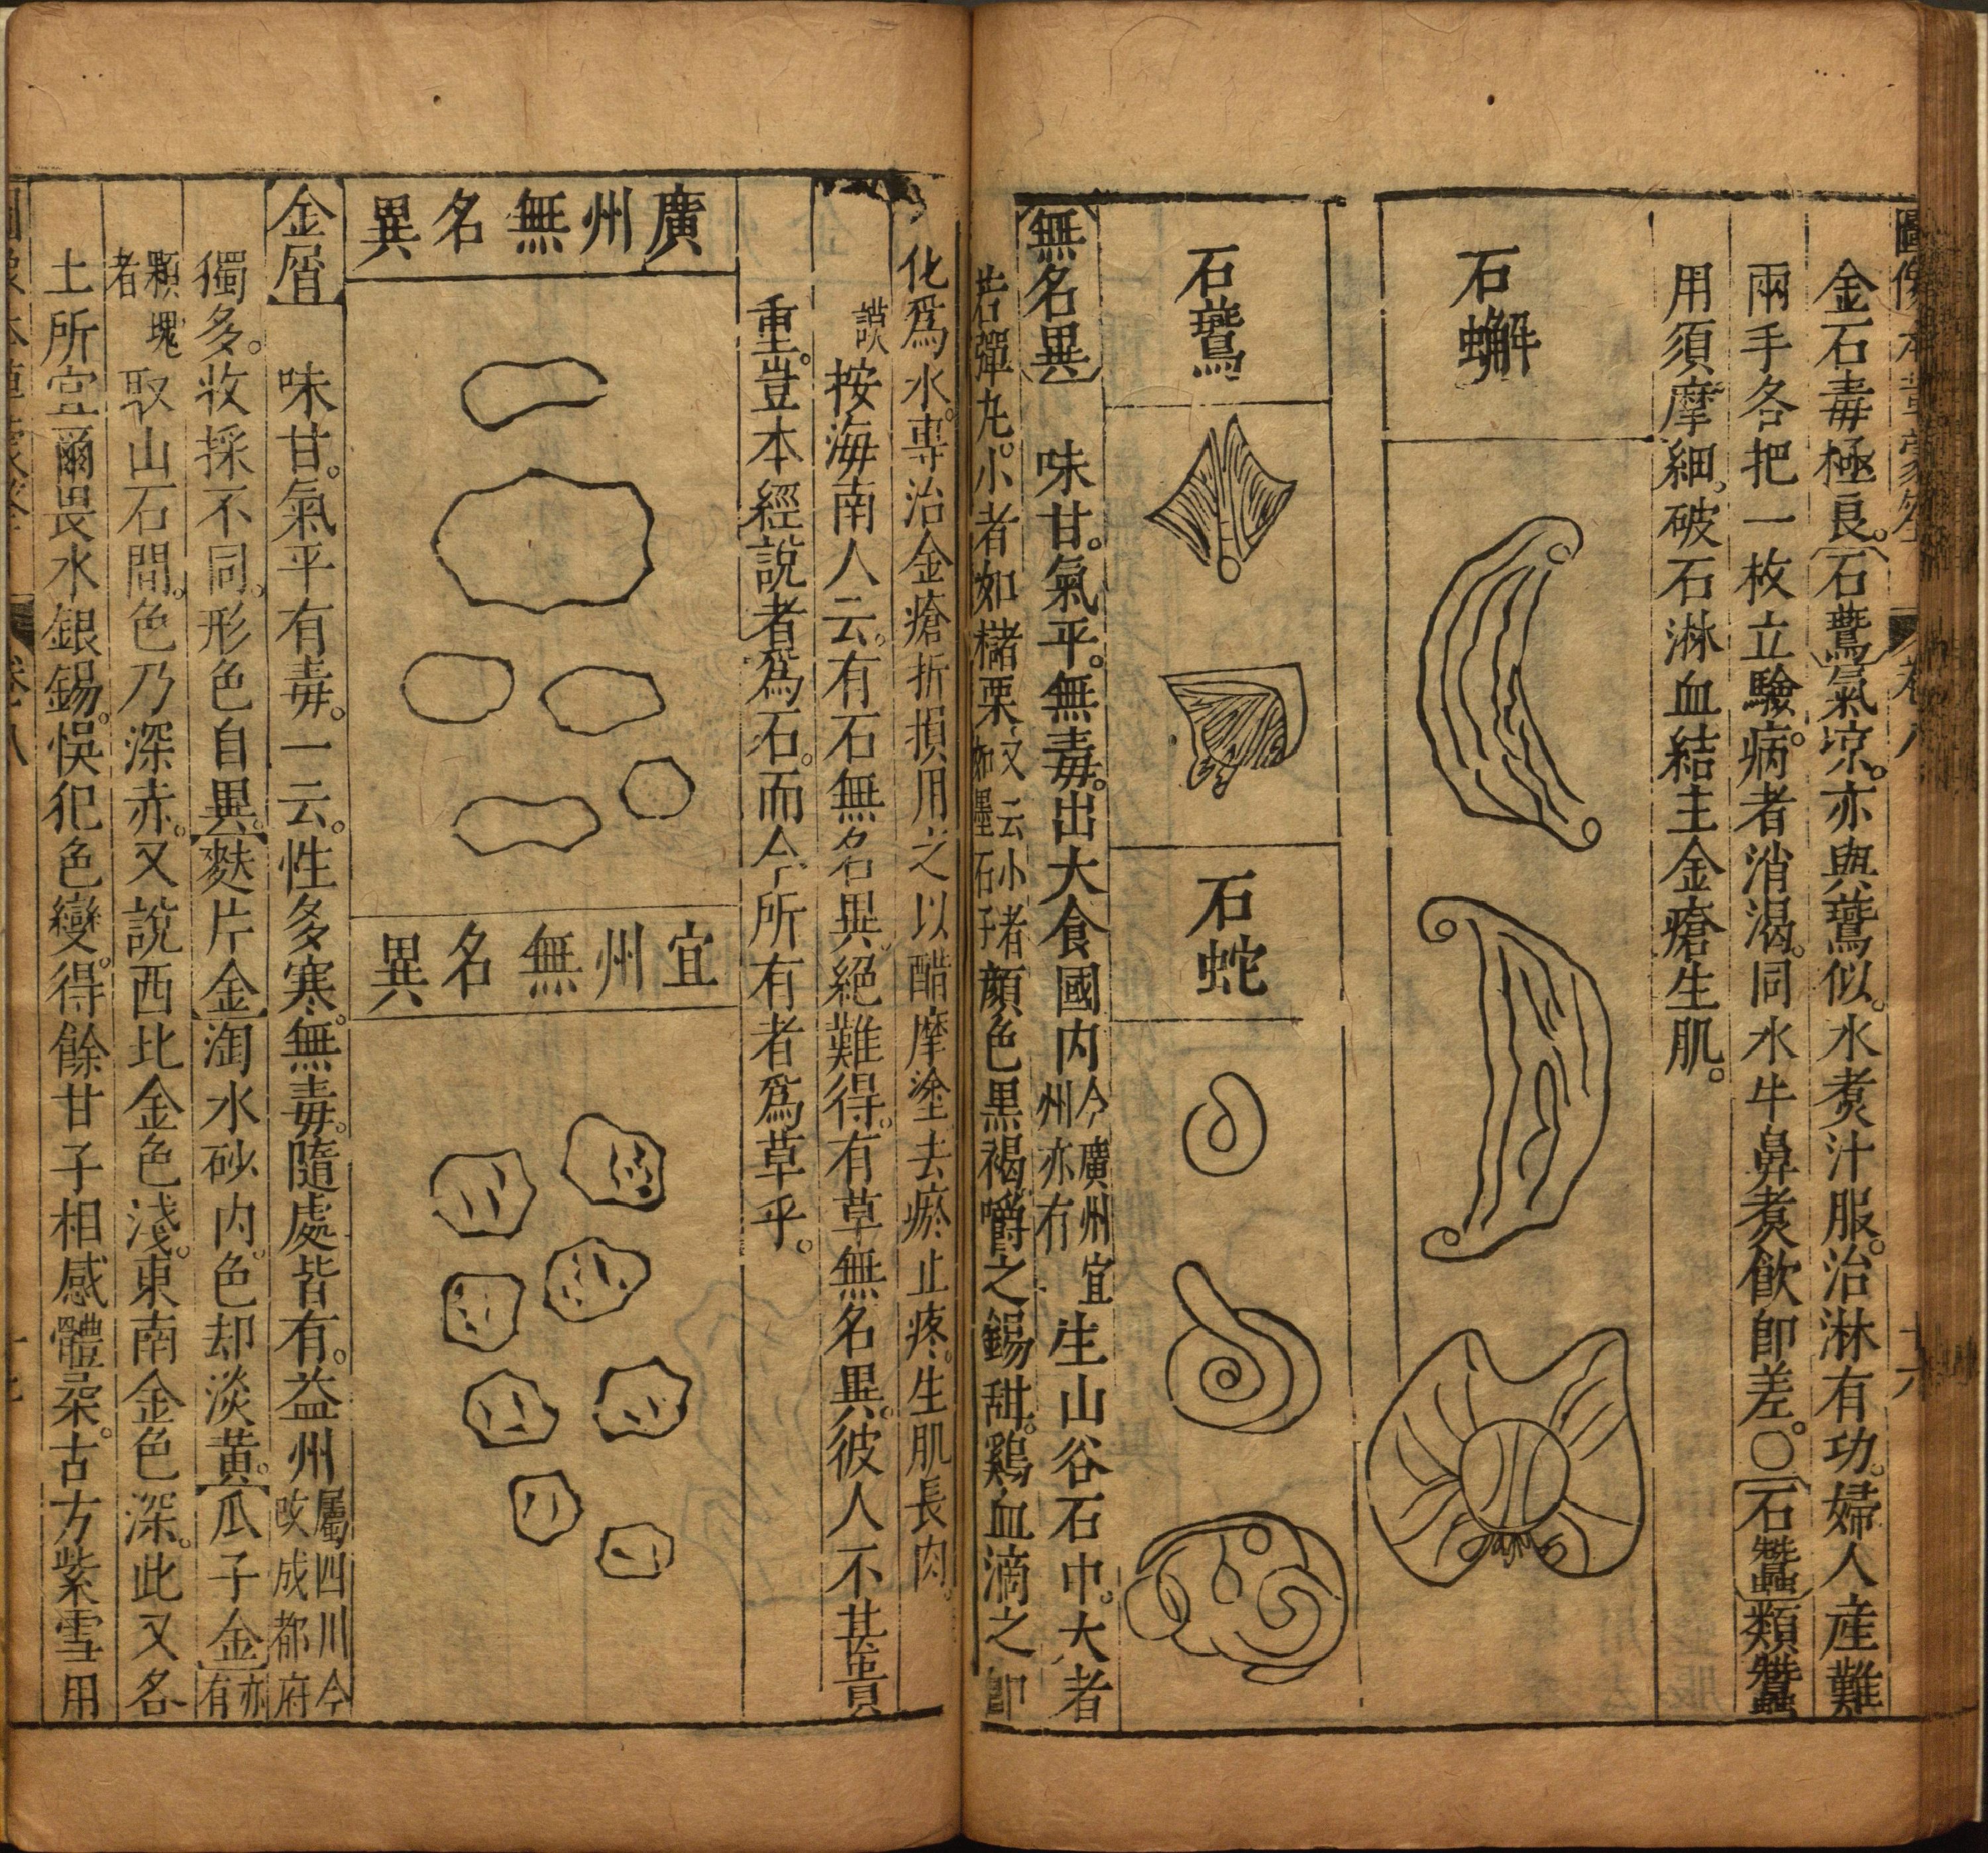 金石毒極良。石鷰氣凉。亦與鷰似。水煑汁服。治淋有功。婦人産難
兩手各把一枚立驗。病者消渴。同水牛鼻煑飲卽差。〇石蠶類蠶
用須摩細。破石淋血結主金瘡生肌。
石蠏
石鷰
石蛇
無名異 味甘。氣平。無毒。出大食國内今廣州宜州亦有生山谷石中。大者
若彈丸。小者如櫧栗又云小者如墨石子顔色黒褐嚼之錫甜。鷄血滴之卽
化爲水。專治金瘡折損用之以醋摩塗去瘀止疼。生肌長肉。
謨按海南人云。有石無名異。絕難得。有草無名異。彼人不甚貴
重。豈本經說者爲石。而今所有者爲草乎。
廣州無名異
宜州無名異
金屑 味甘。氣平有毒。一云。性多寒。無毒。隨處皆有。益州屬四川今改成都府
獨多。收採不同。形色自異。麩片金淘水砂内。色却淡黄。瓜子金亦有
顆塊者取山石間。色乃深赤。又說西北金色淺。東南金色深。此又各
土所宜爾畏水銀錫。悞犯色變。得餘甘子相感體柔。古方紫雪用